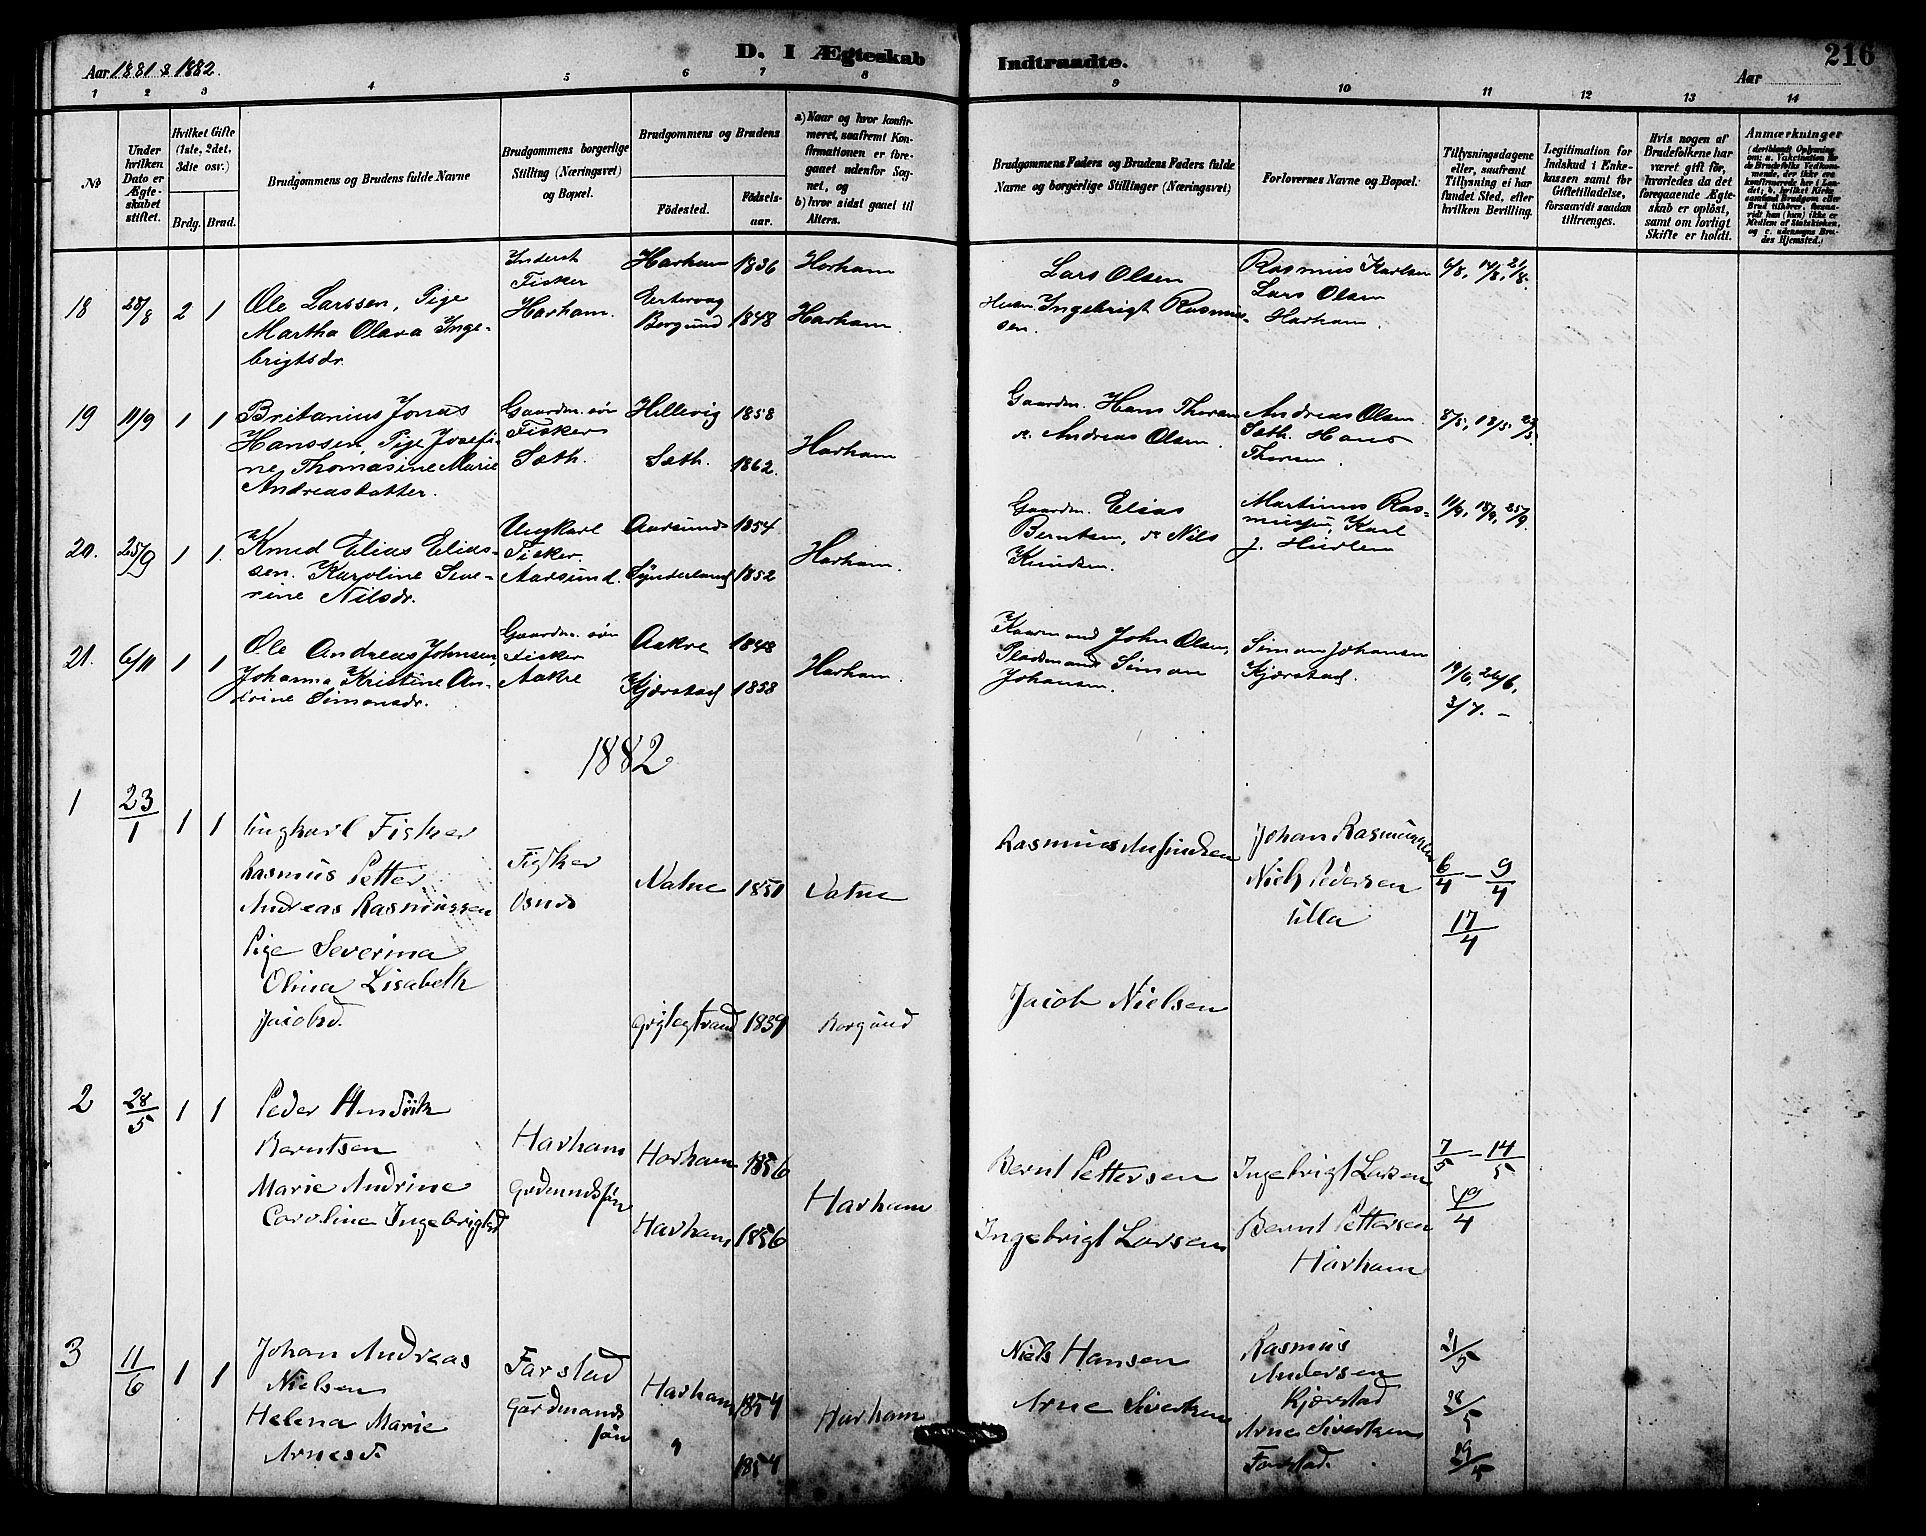 Aar 1881 & 1882.
D. I Ægteskab
Indtraadte.
216
Aar
1 2 3 4 5 6 7 8 9 10 11 12 13 14
No
Under hvilken Dato er Ægteskabet stiftet.
Hvilket Gifte (1ste, 2det, 3die osv.)
Brdg. Brud.
Brudgommens og Brudens fulde Navne
Brudgommens borgerlige Stilling (Næringsvei) og Bopæl.
Brudgommens og Brudens
Fødested.
Fødselsaar.
a) Naar og hvor konfirmeret, saafremt Konfirmationen er foregaaet udenfor Sognet, og
b) hvor sidst gaaet til Alters.
Brudgommens Faders og Brudens Faders fulde Navne og borgerlige Stillinger (Næringsvei)
Forlovernes Navne og Bopæl.
Tillysningsdagene eller, saafremt Tillysning ei har fundet Sted, efter hvilken Bevilling.
Legitimation for Indskud i Enkekassen samt for Giftetilladelse, forsaavidt saadan tiltrænges.
Hvis nogen af Brudefolkene har været gift før, hvorledes da det foregaaende Ægteskab er opløst, samt om lovligt Skifte er holdt.
Anmærkninger
18 28/8 2 1
Ole Larssen, Pige
Martha Olava Inge-
brigtsdr.
Inderst
Fisker
Harham.
Harham 1836 Harham
Borgund 1848 Harham.
Lars Olsen
Ingebrigt Rasmus-
sen.
Rasmus Karlsen
Lars Olsen
Harham.
6/8, 14/8, 21/8.
19 11/9 1 1
Britanius Jonas
Hanssen, Pige Josefi-
ne Thomasine Marie
Andreasdatter.
Gaardm. søn
Fisker
Sæth.
Hellevig 1858
Sæth. 1862.
Harham
Gaardm. Hans Thorsen
& Andreas Olsen.
Andreas Olsen
Sæth. Hans
Thorsen.
20. 25/9 1 1.
Knud Elias Elias-
sen. Karoline Seve-
rine Nilsdr.
Ungkarl
Fisker
Aarsund.
Aarsund 1854
Synderland 1852
Harham.
Gaardm. Elias
Berntsen, & Nils
Knudsen.
Martinus Ras-
mussen, Karl
J. Hurlen
11/9, 18/9, 25/9.
21. 6/11 1 1
Ole Andreas Johnsen,
Johanna Kristine An-
drine Simonsdr.
Gaardm. søn
Fisker
Aakre
Aakre 1848
Kjærstad 1858
Harham.
John Olsen,
Pladsmand Simon
Johansen.
Simon Johansen
Kjærstad.
19/6, 26/6,
3/7. -
1882
1 23/1 1 1
Ungkarl Fisker
Rasmus Petter
Andreas Rasmussen
Pige Severina
Olina Lisabeth
Jacobsd.
Fisker
Osnes
Vatne 1851 Vatne
1839 Borgund
Rasmus Amundsen
Jacob Nielsen
Johan Rasmussen
Niels Pedersen
Ulla
6/4 - 9/4
17/4
2 28/5 1 1
Peder Hendrik
Berntsen
Marie Andrine
Caroline Ingebrigtsd
Harham
Gardmandssøn
Harham 1856
Harham 1856
Harham
Bernt Pettersen
Ingebrigt Larsen
Ingebrigt Larsen
Bernt Pettersen
Harham
7/5 - 14/5
19/4
3 11/6 1 1
Johan Andreas
Nielsen
Helena Marie
Arnesd
Farstad
Gardmands
søn
Harham 1854
" 1854
Harham
Niels Hansen
Arne Sivertsen
Rasmus
Andersen
Kjærstad
Arne Sivertsen
Farstad.
21/5
28/5
19/5